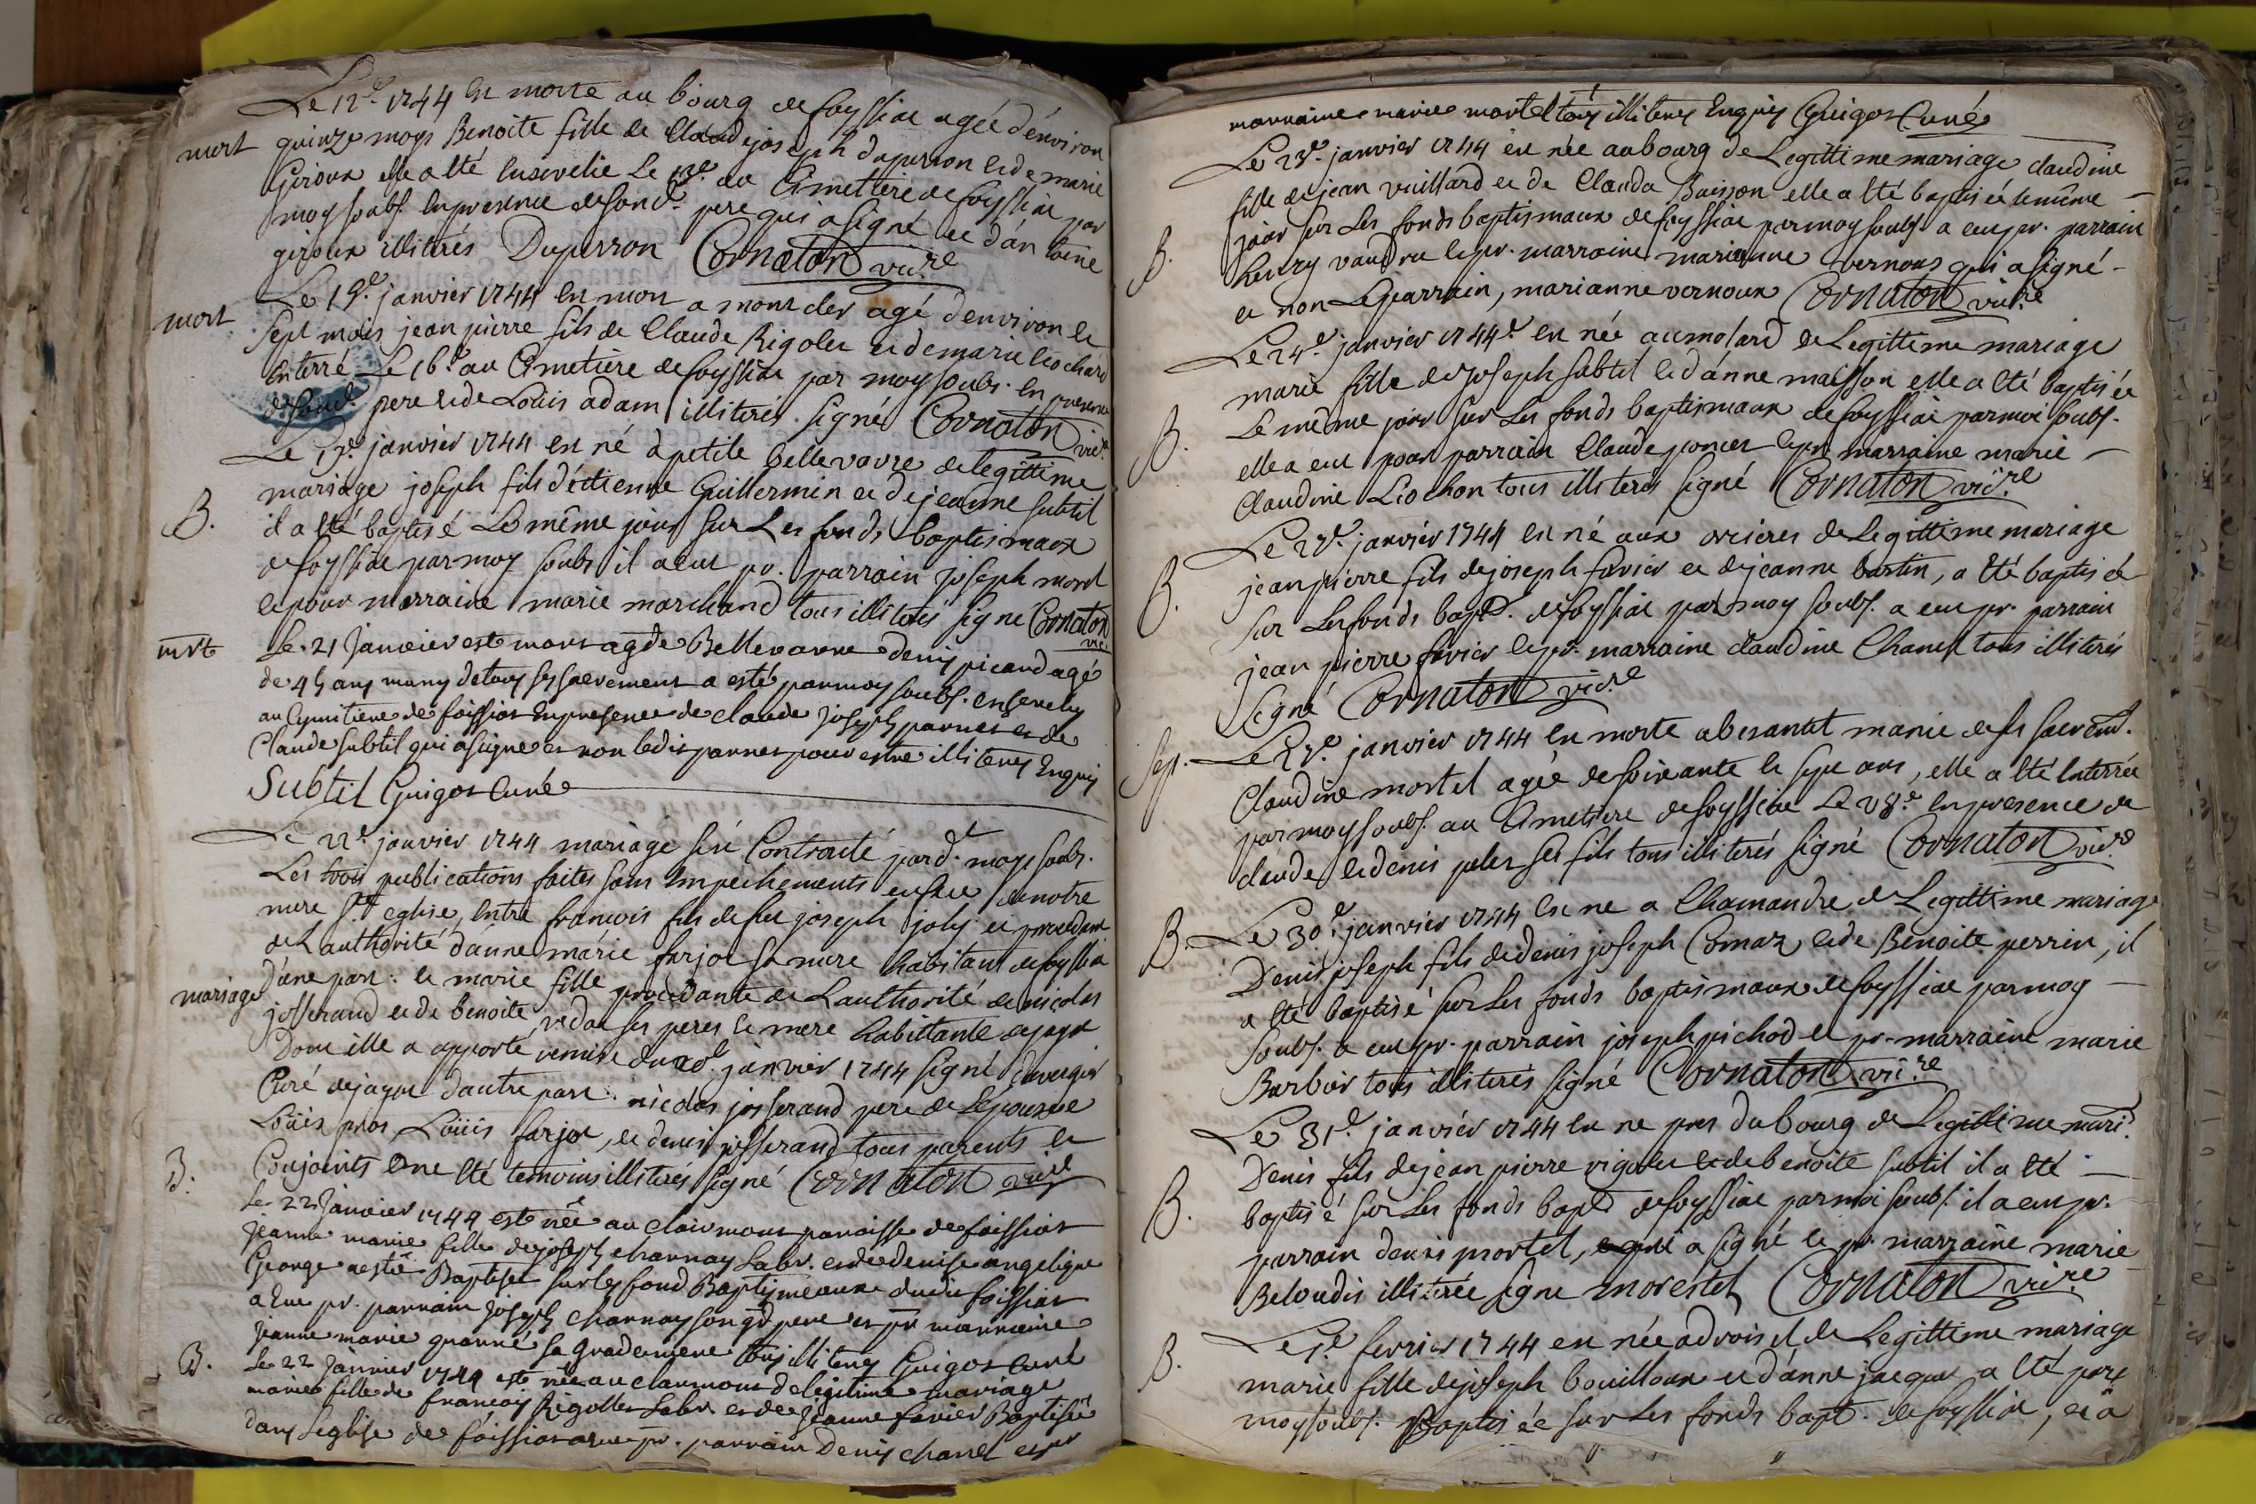 Le 12e. 1744 est morte au bourg de foyssiat agée d'environ
mort quinze moys Benoite fille de Claude joseph duperron et de marie
Giroux elle a été ensevelie Le 13e. au Cimettiere de foyssiat par
moy soubs. en presence desond. pere qui a signé et d'antoine
giroux illiterés Duperron Cornaton vic.re
Le 15e. janvier 1744 est mort a montcler agé d'environ
mort sept mois jean pierre fils de Claude Rigolet et de marie Liochard
Enterré Le 16e au Cimetiere de foyssiat par moy soubs. en presence
desond. pere et de Loüis adam illiterés. signé Cornaton vic.re
Le janvier 1744 est né a petite bellevavre de legittime
mariage joseph fils d'etienne Guillermin et de jeanne subtil
B. il a été baptisé Le même jour sur Les fonds baptismaux
de foyssiat par moy soubs il a eut pr. parrain joseph morel
et pour marraine marie marchand tous illiterés signé Cornaton vic.
mrt Le 21 Janvier est mort a Bellevavre denis picard agé
de 45 ans muny de tous ses sacrements a esté par moy soubs. ensevely
au Cymitiere de foissiat En presence de claude Joseph parnet et de
Claude subtil qui a signé et non ledit parnet pour estre illiteres Enquis
Subtil Guigot Curé
Le 22e. janvier 1744 mariage fut Contracté pard. moys soubs.
Les trois publications faites sans Empechements en face de notre
mere ste eglise, Entre francois fils de feu joseph joly et procedant
de L'authorité d'anne marie farjot sa mere habitant de foyssia
mariage d'une part. et marie fille procedante de L'authorité de nicolas
josserand et de benoite ses pere et mere habittante de jayat
Dont ille a apporté remise du 20e. janvier 1744 signé
Curé de jayat d'autre part. nicolas josserand pere de L'epouse
Loüis Loüis farjot, et denis josserand tous parents et
Conjoints One été temoins illiterés signé Cornaton vic.re
B. Le 22 Janvier 1744 est née au clairmont parroisse de foissiat
Jeanne marie fille de joseph charnay Labr. et de denise angelique
George a esté Baptisée sur les fond Baptismeaux dudit foissiat
a Eue pr. parrain Joseph charnay son gd pere et pr marraine
Jeanne marie sa grademere tous illiteres Guigot Curé
B. Le 22 Janvier 1744 est née au clairmont de legitime mariage
marie fille de francois Rigollet Labr et de Jeanne favier Baptisée
dans Leglise de foissiat a eu pr. parrain Denis chanel et pr
marraine marie mortel tous illiteres Enquis Guigot Curé
Le 23e. janvier 1744 est née au bourg de Legittime mariage claudine
fille de jean vuillard et de Clauda Buisson elle a été baptisée le même
B. jour sur Les fonds baptismaux de foyssiat par moy soubs. a eu pr. parrain
henry vaudru et pr. marraine marianne vernoux qui a signé
et non Le parrain, marianne vernoux Cornaton vic.re
Le 24e. janvier 1744e. est née au molard de Legittime mariage
marie fille de joseph subtil et d'anne maisson elle a été baptisée
B. Le même jour sur Les fonds baptismaux de foyssiat par moi soubs.
elle a eut pour parrain Claude poncet et pr marraine marie
Claudine Liochon tous illiterés signé Cornaton vic.re
Le 27e. janvier 1744 est né aux orcieres de Legittime mariage
B. jean pierre fils de joseph favier et de jeanne bastin, a été baptisé
sur Les fonds bapt. de foyssiat par moy soubs. a eu pr. parrain
jean pierre favier et pr. marraine claudine Chanel tous illiterés
signé Cornaton vic.re
Sep. Le 27e. janvier 1744 est morte a besantet munie de ses sacremt.
Claudine mortel agée de soixante et sept ans, elle a été Enterrée
par moy soubs. au Cimettiere de foyssiat Le 28e. en presence de
claude et denis ses fils tous illiterés signé Cornaton vic.re
B. Le 30e. janvier 1744 est ne a Chamandre de Legittime mariage
Denis joseph fils de denis joseph Comaz et de Benoite perrin, il
a été baptisé sur Les fonds baptismaux de foyssiat par moy
soubs. a eu pr. parrain joseph pichod et pr. marraine marie
Barbier tous illiterés signé Cornaton vic.re
Le 31e. janvier 1744 est ne pres du bourg de Legittime mari.
Denis fils de jean pierre rigolet et de benoite subtil il a été
B. baptisé sur Les fonds bapt de foyssiat par moi soubs. il a eu pr.
parrain denis mortel, qui a signé et pr marraine marie
Beloudis illitérée signé morestel Cornaton vic.re
B. Le 1e. fevrier 1744 est née a de Legittime mariage
marie fille de joseph bouilloux et d'anne jacquet a été par
moy soubs. Baptisée sur Les fonds bapt. de foyssiat, et a